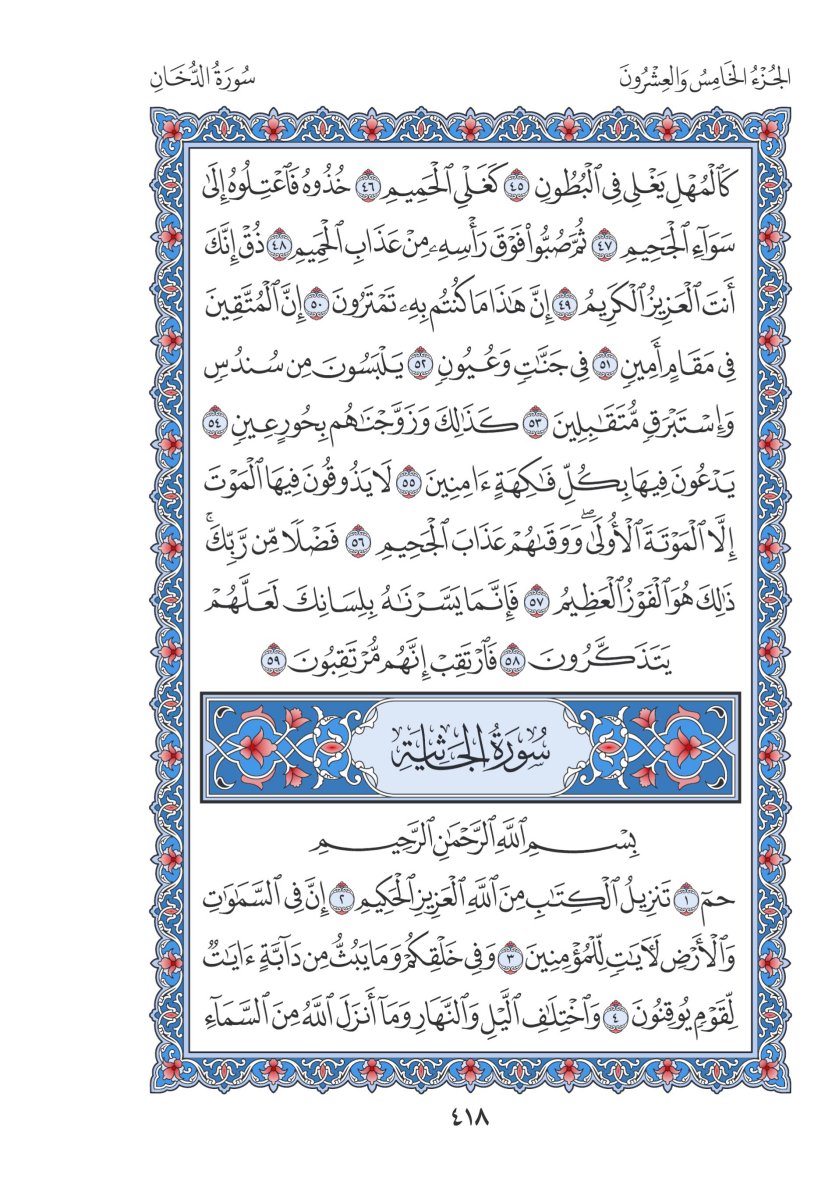 الجُزْءُ الخَامِسُ وَالعِشْرُونَ
سُورَةُ الدُّخَانِ
كَٱلْمُهْلِ يَغْلِي فِي ٱلْبُطُونِ ٤٥ كَغَلْيِ ٱلْحَمِيمِ ٤٦ خُذُوهُ فَٱعْتِلُوهُ إِلَىٰ
سَوَآءِ ٱلْجَحِيمِ ٤٧ ثُمَّ صُبُّوا۟ فَوْقَ رَأْسِهِۦ مِنْ عَذَابِ ٱلْحَمِيمِ ٤٨ ذُقْ إِنَّكَ
أَنتَ ٱلْعَزِيزُ ٱلْكَرِيمُ ٤٩ إِنَّ هَٰذَا مَا كُنتُم بِهِۦ تَمْتَرُونَ ٥٠ إِنَّ ٱلْمُتَّقِينَ
فِي مَقَامٍ أَمِينٍ ٥١ فِي جَنَّٰتٍ وَعُيُونٍ ٥٢ يَلْبَسُونَ مِن سُندُسٍ
وَإِسْتَبْرَقٍ مُّتَقَٰبِلِينَ ٥٣ كَذَٰلِكَ وَزَوَّجْنَٰهُم بِحُورٍ عِينٍ ٥٤
يَدْعُونَ فِيهَا بِكُلِّ فَٰكِهَةٍ ءَامِنِينَ ٥٥ لَا يَذُوقُونَ فِيهَا ٱلْمَوْتَ
إِلَّا ٱلْمَوْتَةَ ٱلْأُولَىٰۖ وَوَقَىٰهُمْ عَذَابَ ٱلْجَحِيمِ ٥٦ فَضْلًا مِّن رَّبِّكَۚ
ذَٰلِكَ هُوَ ٱلْفَوْزُ ٱلْعَظِيمُ ٥٧ فَإِنَّمَا يَسَّرْنَٰهُ بِلِسَانِكَ لَعَلَّهُمْ
يَتَذَكَّرُونَ ٥٨ فَٱرْتَقِبْ إِنَّهُم مُّرْتَقِبُونَ ٥٩
سُورَةُ الجَاثِيَةِ
بِسْمِ ٱللَّهِ ٱلرَّحْمَٰنِ ٱلرَّحِيمِ
حمٓ ١ تَنزِيلُ ٱلْكِتَٰبِ مِنَ ٱللَّهِ ٱلْعَزِيزِ ٱلْحَكِيمِ ٢ إِنَّ فِي ٱلسَّمَٰوَٰتِ
وَٱلْأَرْضِ لَءَايَٰتٍ لِّلْمُؤْمِنِينَ ٣ وَفِي خَلْقِكُمْ وَمَا يَبُثُّ مِن دَآبَّةٍ ءَايَٰتٌ
لِّقَوْمٍ يُوقِنُونَ ٤ وَٱخْتِلَٰفِ ٱلَّيْلِ وَٱلنَّهَارِ وَمَآ أَنزَلَ ٱللَّهُ مِنَ ٱلسَّمَآءِ
٤١٨